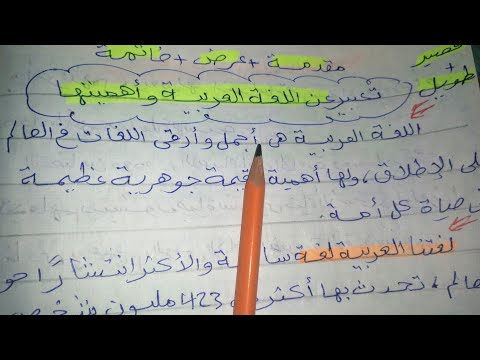 قصير
+
طويل
مقدمة + عرض + خاتمة
تعبير عن اللغة العربية وأهميتها
اللغة العربية هي أجمل وأرقى اللغات في العالم
على الإطلاق، ولها أهمية قيمة جوهرية عظيمة
في حياة كل أمة.
لغتنا العربية لغة سامية والأكثر انتشارًا حو
عالم، تحدث بها أكثر 423 مليون شخص